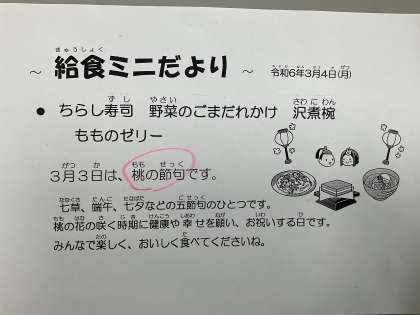 ～ 給食ミニだより ～ 令和6年3月4日(月)
● ちらし寿司 野菜のごまだれかけ 沢煮椀
もものゼリー
3月3日は、桃の節句です。
七草、端午、七夕などの五節句のひとつです。
桃の花の咲く時期に健康や幸せを願い、お祝いする日です。
みんなで楽しく、おいしく食べてくださいね。